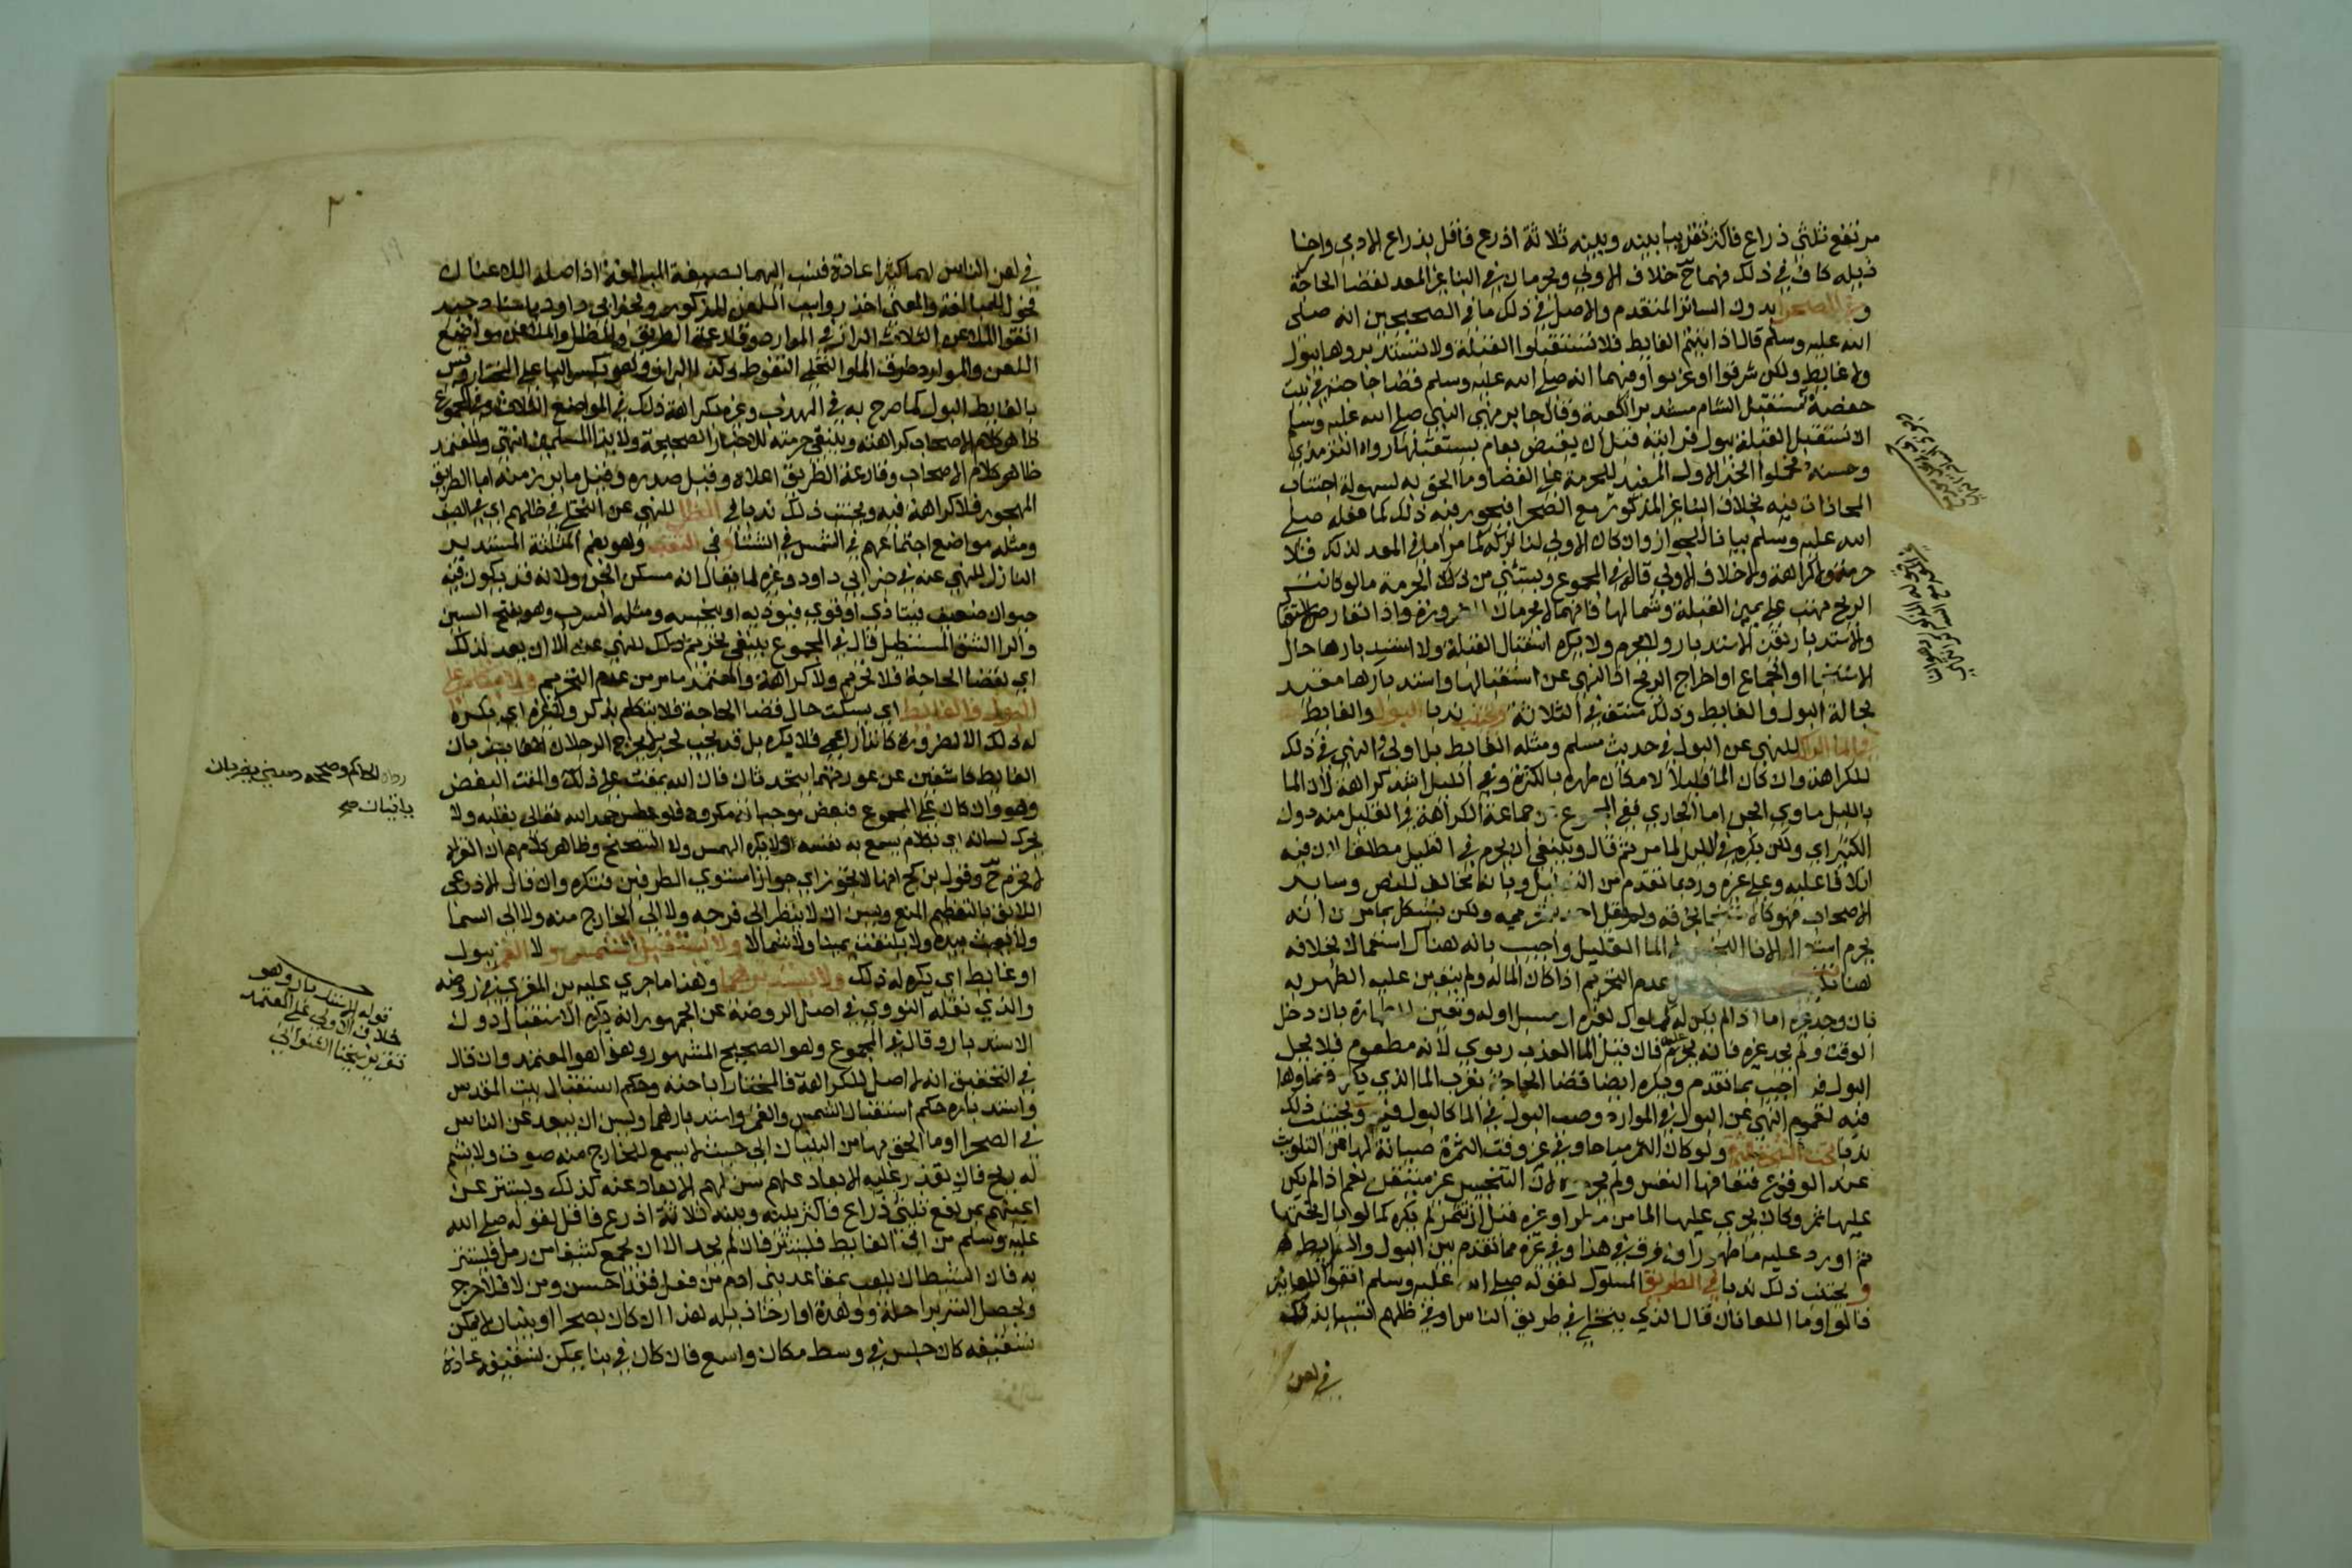 مرتفع ثلثي ذراع فاكثر تقريبا بينه وبينه ثلاثة اذرع فاقل بذراع الادمي وارخا
ذيله كاف في ذلك فهما ح خلاف الاولي ويحرمان في البنا غير المعد لقضا الحاجة
و في الصحرا بدون الساتر المتقدم والاصل في ذلك ما في الصحيحين انه صلى
الله عليه وسلم قال اذا اتيتم الغايط فلا تستقبلوا القبلة ولا تستدبروها ببول
ولا غايط ولكن شرقوا او غربوا وفيهما انه صلي الله عليه وسلم قضا حاجته في بيت
حفصة مستقبل الشام مستدبر الكعبة وقال جابر نهي النبي صلي الله عليه وسلم
ان نستقبل القبلة ببول فرايته قبل ان يقبض بعام يستقبلها رواه الترمذي
وحسنه فحملوا الخبر الاول المفيد للحرمة علي الفضا وما الحق به لسهولة اجتناب
المحاذات فيه بخلاف البنا غير المذكور مع الصحرا فيجوز فيه ذلك كما فعله صلي
الله عليه وسلم بيانا للجواز وان كان الاولي لنا تركه كما مر اما في المعد لذلك فلا
حرمة ولا كراهة ولا خلاف الاولي قاله في المجموع ويستثني من ذلك الحرمة ما لو كانت
الريح تهب علي يمين القبلة وشمالها فانهما لا يحرمان للضرورة واذا تعارض الاستقبال
والاستدبار تعين الاستدبار ولا يحرم ولا يكره استقبال القبلة ولا استدبارها حال
الاستنجا او الجماع او اخراج الريح اذ النهي عن استقبالها واستدبارها مقيد
بحالة البول والغايط وذلك منتف في الثلاثة ويجتنب ندبا البول والغايط
في الما الراكد للنهي عن البول في حديث مسلم ومثله الغايط بل اولي والنهي في ذلك
للكراهة وان كان الما قليلا لامكان طهره بالكثرة وفي الليل اشد كراهة لان الما
بالليل ماوي الجن اما الجاري ففي المجموع عن جماعة الكراهة في القليل منه دون
الكثير اي ولكن يكره في الليل لما مر ثم قال وينبغي ان يحرم في القليل مطلقا لان فيه
اتلافا عليه وعلي غيره ورد بما تقدم من التعليل وبانه مخالف للنص وساير
الاصحاب فهو كالاستنجا بخرقة ولم يقل احد بتحريمه ولكن يشكل بما مر من انه
يحرم استعمال الانا النجس في الما القليل واجيب بانه هناك استعمال بخلافه
هنا
عدم التحريم اذا كان الما له ولم يتعين عليه الطهر به
بان وجد غيره اما اذا لم يكن له كمملوك لغيره او مسبل اوله وتعين للطهارة بان دخل
الوقت ولم يجد غيره فانه يحرم عليه فان قيل الما العذب ربوي لانه مطعوم فلا يحل
البول فيه اجيب بما تقدم ويكره ايضا قضا الحاجة بقرب الما الذي يكره قضاوها
فيه لعموم النهي عن البول في الموارد وصب البول في الما كالبول فيه ويجتنب ذلك
ندبا تحت الشجرة المثمرة ولو كان الثمر مباحا وفي غير وقت الثمرة صيانة لها عن التلويث
عند الوقوع فتعافها النفس ولم يحرموه لان التنجيس غير متيقن نعم اذا لم يكن
عليها ثمر وكان يجري عليها الما من مطر او غيره قبل ان تثمر لم يكره كما لو بال تحتها
ثم اورد عليه ما طهور ولا فرق في هذا وفي غيره مما تقدم بين البول والغايط
و يجتنب ذلك ندبا في الطريق المسلوك لقوله صلي الله عليه وسلم اتقوا اللعانين
قالوا وما اللعانان قال الذي يتخلي في طريق الناس او في ظلهم تسببا بذلك
في لعن
٢٠
في لعن الناس لهما كثيرا عادة فنسب اليهما بصيغة المبالغة اذ اصله اللاعنان
فحول للمبالغة والمعني احذروا سبب اللعن المذكور ولخبر ابي داود باسناد جيد
اتقوا الملاعن الثلاث البراز في الموارد وقارعة الطريق والظل والملاعن مواضع
اللعن والموارد طرف الما والتخلي التغوط وكذا البراز وهو بكسر البا علي المختار وقيس
بالغايط البول كما صرح به في المهذب وغيره بكراهة ذلك في المواضع الثلاث وفي المجموع
ظاهر كلام الاصحاب كراهته وينبغي حرمته للاخبار الصحيحة ولايذا المسلمين انتهي والمعتمد
ظاهر كلام الاصحاب وقارعة الطريق اعلاه وقيل صدره وقيل ما برز منه اما الطريق
المهجور فلا كراهة فيه ويجتنب ذلك ندبا في الظل للنهي عن التخلي في ظلهم اي في الصيف
ومثله مواضع اجتماعهم في الشمس في الشتا و في الثقب وهو بضم المثلثة المستدير
النازل للنهي عنه في خبر ابي داود وغيره لما يقال انه مسكن الجن ولانه قد يكون فيه
حيوان ضعيف فيتاذي او قوي فيوذيه او ينجسه ومثله السرب وهو بفتح السين
والرا الشق المستطيل قال في المجموع ينبغي تحريم ذلك للنهي عنه الا ان يعد لذلك
اي لقضا الحاجة فلا تحريم ولا كراهة والمعتمد ما مر من عدم التحريم ولا يتكلم علي
البول والغايط اي يسكت حال قضا الحاجة فلا يتكلم بذكر ولا غيره اي يكره
له ذلك الا لضرورة كانذار اعمي فلا يكره بل قد يجب لخبر لا يخرج الرجلان يضربان
الغايط كاشفين عن عورتهما يتحدثان فان الله يمقت علي ذلك والمقت البغض
وهو وان كان علي المجموع فبعض موجباته مكروه فلو عطس حمد الله تعالي بقلبه ولا
يحرك لسانه اي بكلام يسمع به نفسه اذ لا يكره الهمس ولا التنحنح وظاهر كلامهم ان القراة
لا تحرم ح وقول بن كج انها لا تجوز اي جوازا مستوي الطرفين فتكره وان قال الاذرعي
اللائق بالتعظيم المنع ويسن ان لا ينظر الي فرجه ولا الي الخارج منه ولا الي السما
ولا يعبث بيده ولا يلتفت يمينا ولا شمالا ولا يستقبل الشمس و لا القمر ببول
او غايط اي يكره له ذلك ولا يستدبرهما وهذا ما جري عليه بن المقري في روضه
والذي نقله النووي في اصل الروضة عن الجمهور انه يكره الاستقبال دون
الاستدبار وقال في المجموع وهو الصحيح المشهور وهذا هو المعتمد وان قال
في التحقيق انه لا اصل للكراهة فالمختار اباحته وحكم استقبال بيت المقدس
واستدباره حكم استقبال الشمس والقمر واستدبارهما ويسن ان يبعد عن الناس
في الصحرا او ما الحق بها من البنيان الي حيث لا يسمع للخارج منه صوت ولا يشم
له ريح فان تعذر عليه الابعاد عنهم سن لهم الابعاد عنه كذلك ويستتر عن
اعينهم بمرتفع ثلثي ذراع فاكثر بينه وبينه ثلاثة اذرع فاقل لقوله صلي الله
عليه وسلم من اتي الغايط فليستتر فان لم يجد الا ان يجمع كثيبا من رمل فليستتر
به فان الشيطان يلعب بمقاعد بني ادم من فعل فقد احسن ومن لا فلا حرج
ويحصل الستر براحلة ووهدة او ارخا ذيله هذا ان كان بصحرا او بنيان لا يمكن
تسقيفه كان جلس في وسط مكان واسع فان كان في بنا يمكن تسقيفه عادة
رواه الحاكم وصححه ومعني يضربان
ياتيان صح
قوله الاستدبار وهو
خلاف الاولي علي المعتمد
تقرير شيخنا الشنواني